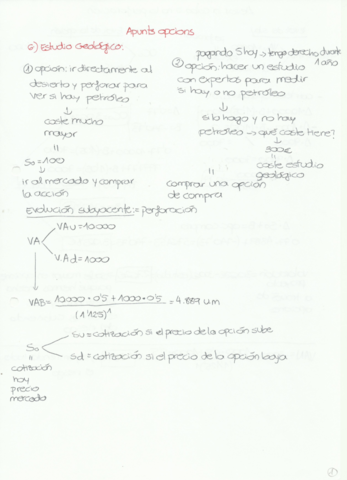 Apunts opcions
6) Estudio Geológico:
① opción: ir directamente al
desierto y perforar para
ver si hay petróleo
↓
coste mucho
mayor
=
So = 100
↓
ir al mercado y comprar
la acción
pagando 5 hoy → tengo derecho durante
1 año
② opción: hacer un estudio
con expertos para medir
si hay o no petróleo
↓
si lo hago y no hay
petróleo → qué coste tiene?
↓
300€
↓
coste estudio
geológico
=
comprar una opción
de compra
Evolución subyacente: = perforación
VAu = 10000
VA
VAd = 1000
↓
VAB = 10000 · 0'5 + 1000 · 0'5 / (1'125)¹ = 4.889 u.m
Su = cotización si el precio de la opción sube
So
Sd = cotización si el precio de la opción baja
=
cotización
hoy
precio
mercado